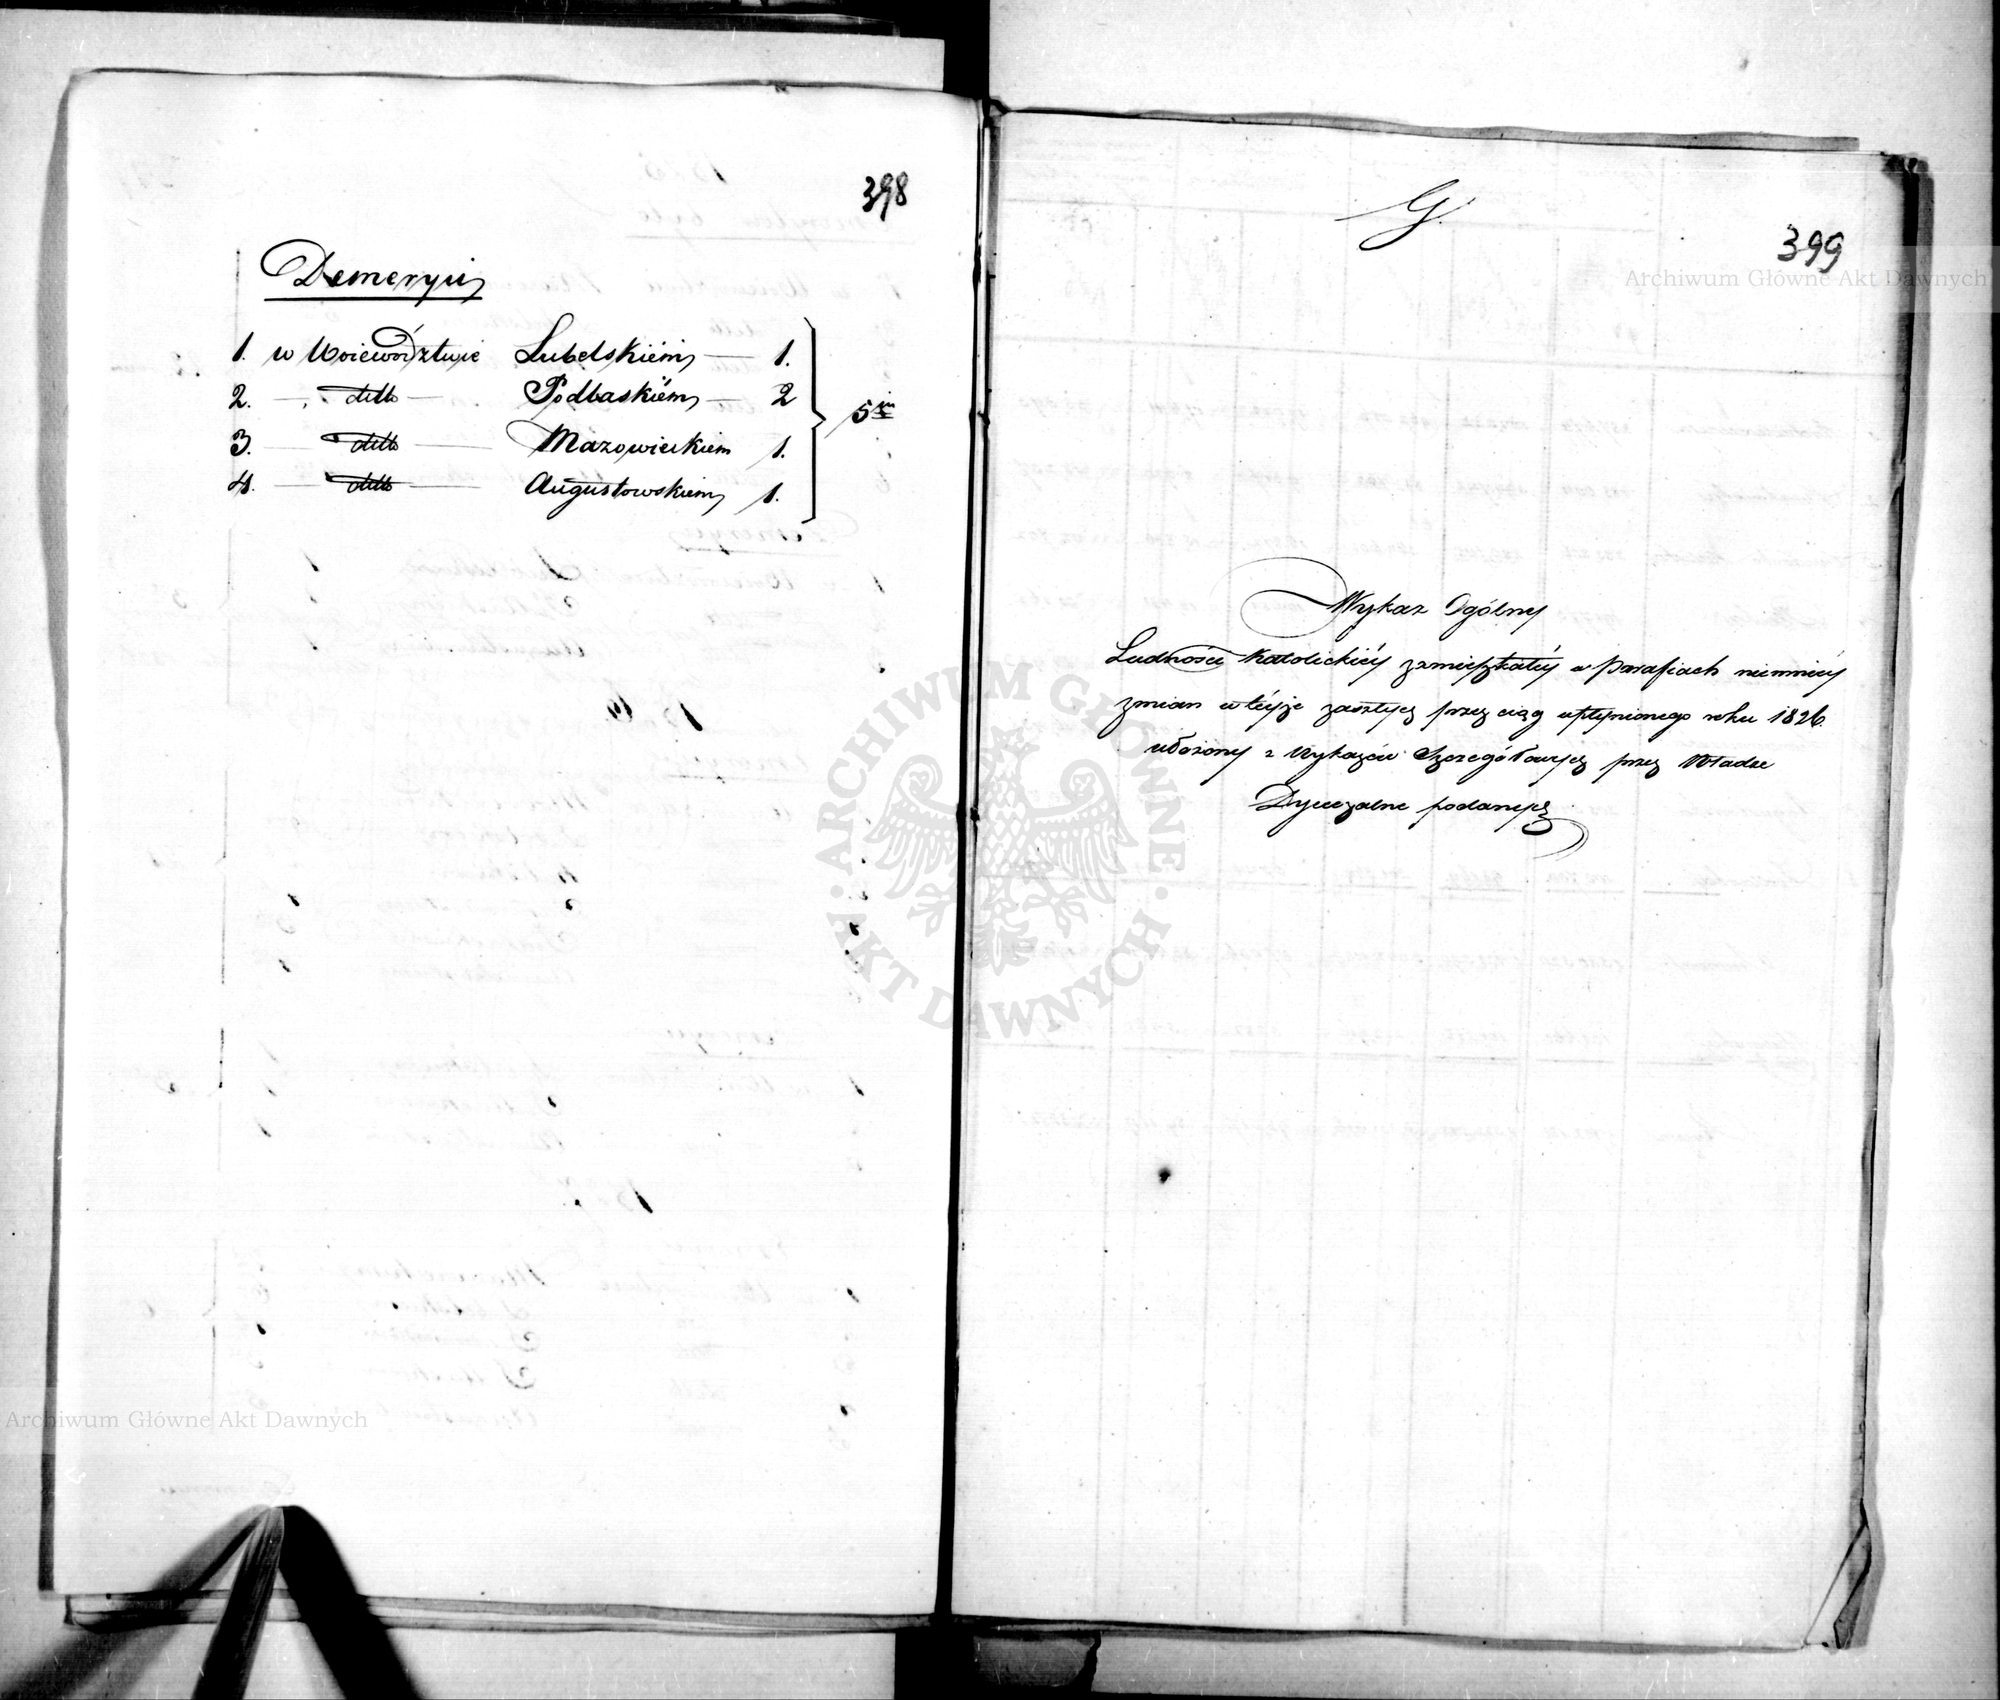 398
Demeryci
1. w Woiewództwie Lubelskiém — 1.
2. — detto — Podlaskiém — 2
3. — detto — Mazowieckiem 1.
4. — detto — Augustowskiem 1.
5
G.
399
Wykaz Ogólny
Ludności Katolickiéy zamieszkałéy w Parafiach niemniéy
zmian w téyże zaszłych przez ciąg upłynionego roku 1826.
ułożony z Wykazów Szczegółowych przez Władze
Dyecezalne podanych
Archiwum Główne Akt Dawnych
ARCHIWUM GŁÓWNE
AKT DAWNYCH
Archiwum Główne Akt Dawnych